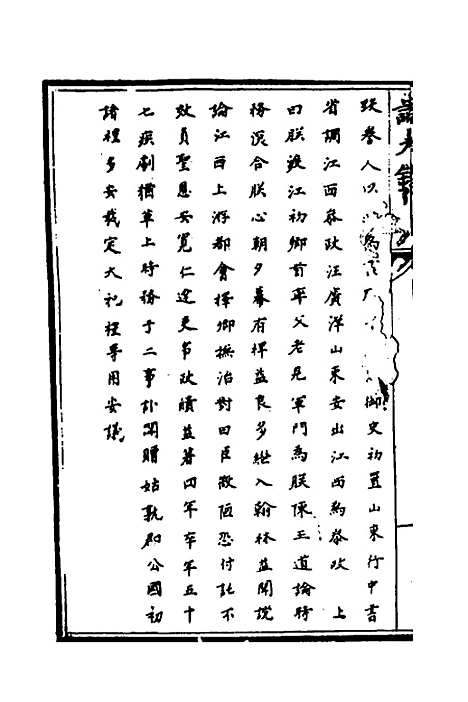 跃叅人以爲御史初置山東行中書
省調江西叅政汪廣洋山東安出江西爲叅政　上
曰朕渡江初卿首率父老見軍門爲朕陳王道論時
務深合朕心朝夕幕有裨益良多繼入翰林益聞說
論江西上游都會擇卿撫治對曰臣敢陋恐付託不
效負聖恩安寬仁達吏事政績益著四年卒年五十
七疾劇猶草上時務十二事訃聞贈姑孰郡公國初
諸禮多安裁定大祀禮専用安議